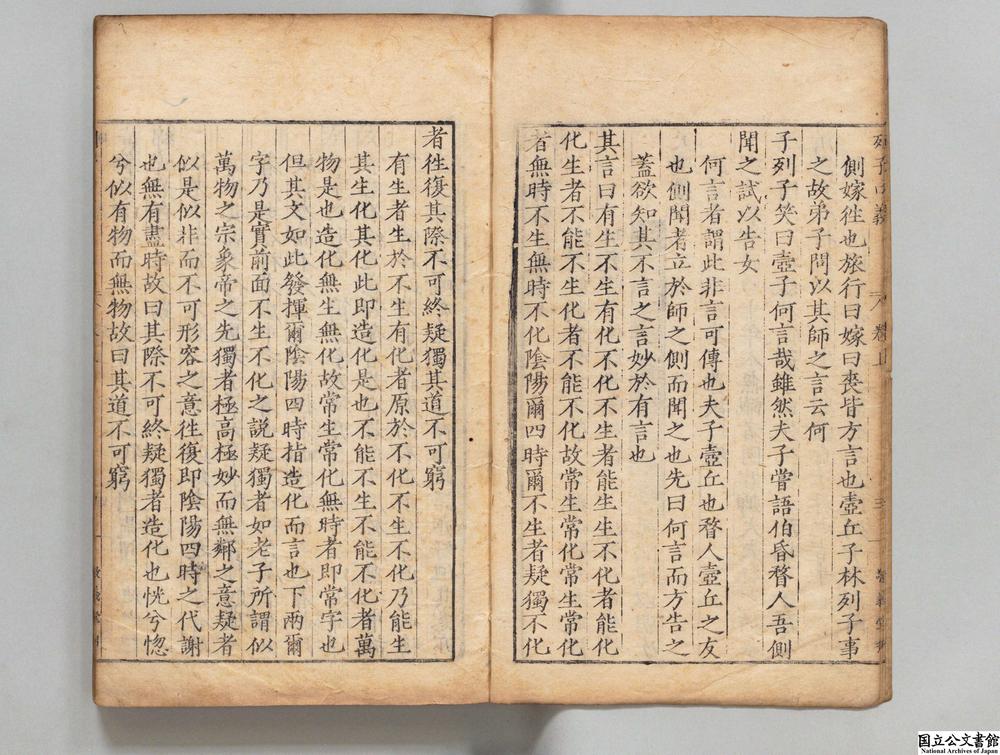 列子口義
卷上
側嫁徃也旅行曰嫁曰喪皆方言也壼丘子林列子事
之故弟子問以其師之言云何
子列子笑曰壼子何言哉雖然夫子嘗語伯昏瞀人吾側
聞之試以告女
何言者謂此非言可傳也夫子壼丘也瞀人壼丘之友
也側聞者立於師之側而聞之也先曰何言而方告之
蓋欲知其不言之言妙於有言也
其言曰有生不生有化不化不生者能生生不化者能化
化生者不能不生化者不能不化故常生常化常生常化
者無時不生無時不化陰陽爾四時爾不生者疑獨不化
者徃復其際不可終疑獨其道不可窮
有生者生於不生有化者原於不化不生不化乃能生
其生化其化此即造化是也不能不生不能不化者萬
物是也造化無生無化故常生常化無時者即常字也
但其文如此發揮爾陰陽四時指造化而言也下兩爾
字乃是實前面不生不化之説疑獨者如老子所謂似
萬物之宗象帝之先獨者極高極妙而無鄰之意疑者
似是似非而不可形容之意徃復即陰陽四時之代謝
也無有盡時故曰其際不可終疑獨者造化也恍兮惚
兮似有物而無物故曰其道不可窮
国立公文書館
National Archives of Japan